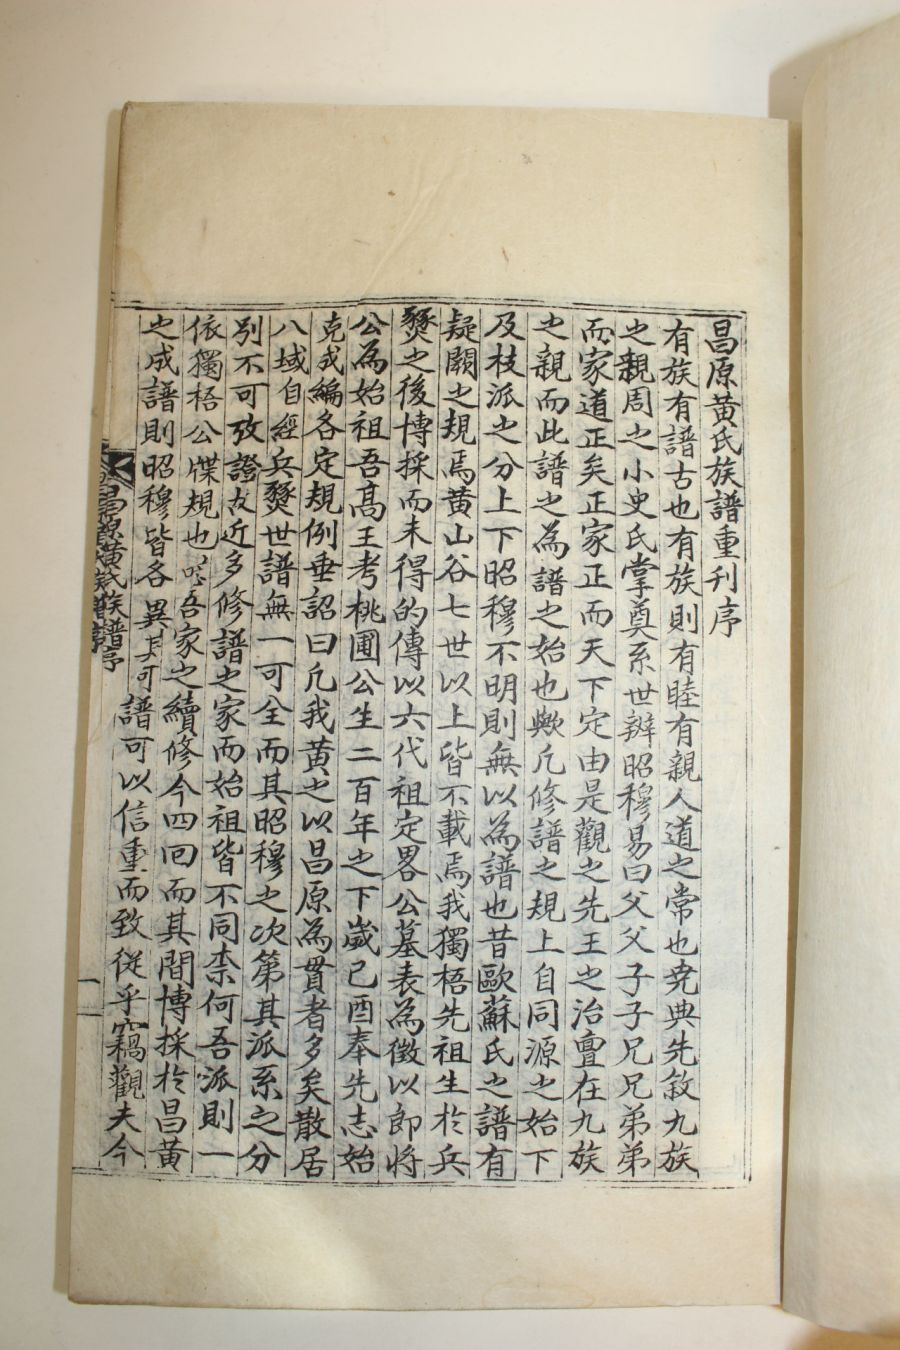 昌原黃氏族譜重刊序
有族有譜古也有族則有睦有親人道之常也尭典先敘九族
之親周之小史氏掌奠系世辨昭穆易曰父父子子兄兄弟弟
而家道正矣正家正而天下定由是觀之先王之治亶在九族
之親而此譜之為譜之始也歟凡修譜之規上自同源之始下
及枝派之分上下昭穆不明則無以為譜也昔歐蘇氏之譜有
疑闕之規焉黃山谷七世以上皆不載焉我獨梧先祖生於兵
燹之後博採而未得的傳以六代祖定畧公墓表為徵以郎將
公為始祖吾髙王考桃圃公生二百年之下歲己酉奉先志始
克成編各定規例垂詔曰凡我黃之以昌原為貫者多矣散居
八域自經兵燹世譜無一可全而其昭穆之次第其派系之分
別不可攷證故近多修譜之家而始祖皆不同柰何吾派則一
依獨梧公牒規也吾家之續修今四回而其間博採於昌黃
之成譜則昭穆皆各異其可譜可以信重而致從乎竊觀夫今
昌原黃氏族譜序
一